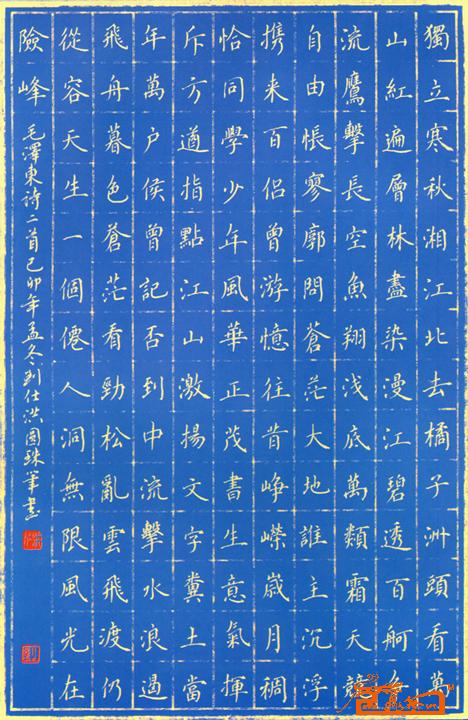 獨立寒秋湘江北去橘子洲頭看萬
山紅遍層林盡染漫江碧透百舸
流鷹擊長空魚翔浅底萬類霜天競
自由悵寥廓問蒼茫大地誰主沉浮
携来百侣曾游憶往昔崢嶸歲月稠
恰同學少年風華正茂書生意氣揮
斥方遒指點江山激揚文字糞土當
年萬户侯曾記否到中流擊水浪遏
飛舟暮色蒼茫看勁松亂雲飛渡仍
從容天生一個僊人洞無限風光在
險峰
毛澤東詩二首己卯年孟冬刘仕洪圆珠筆書